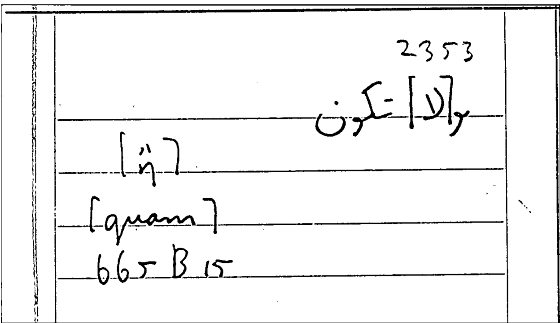 2353
و[لا] تكون
[ἢ]
[quam]
665 B 15